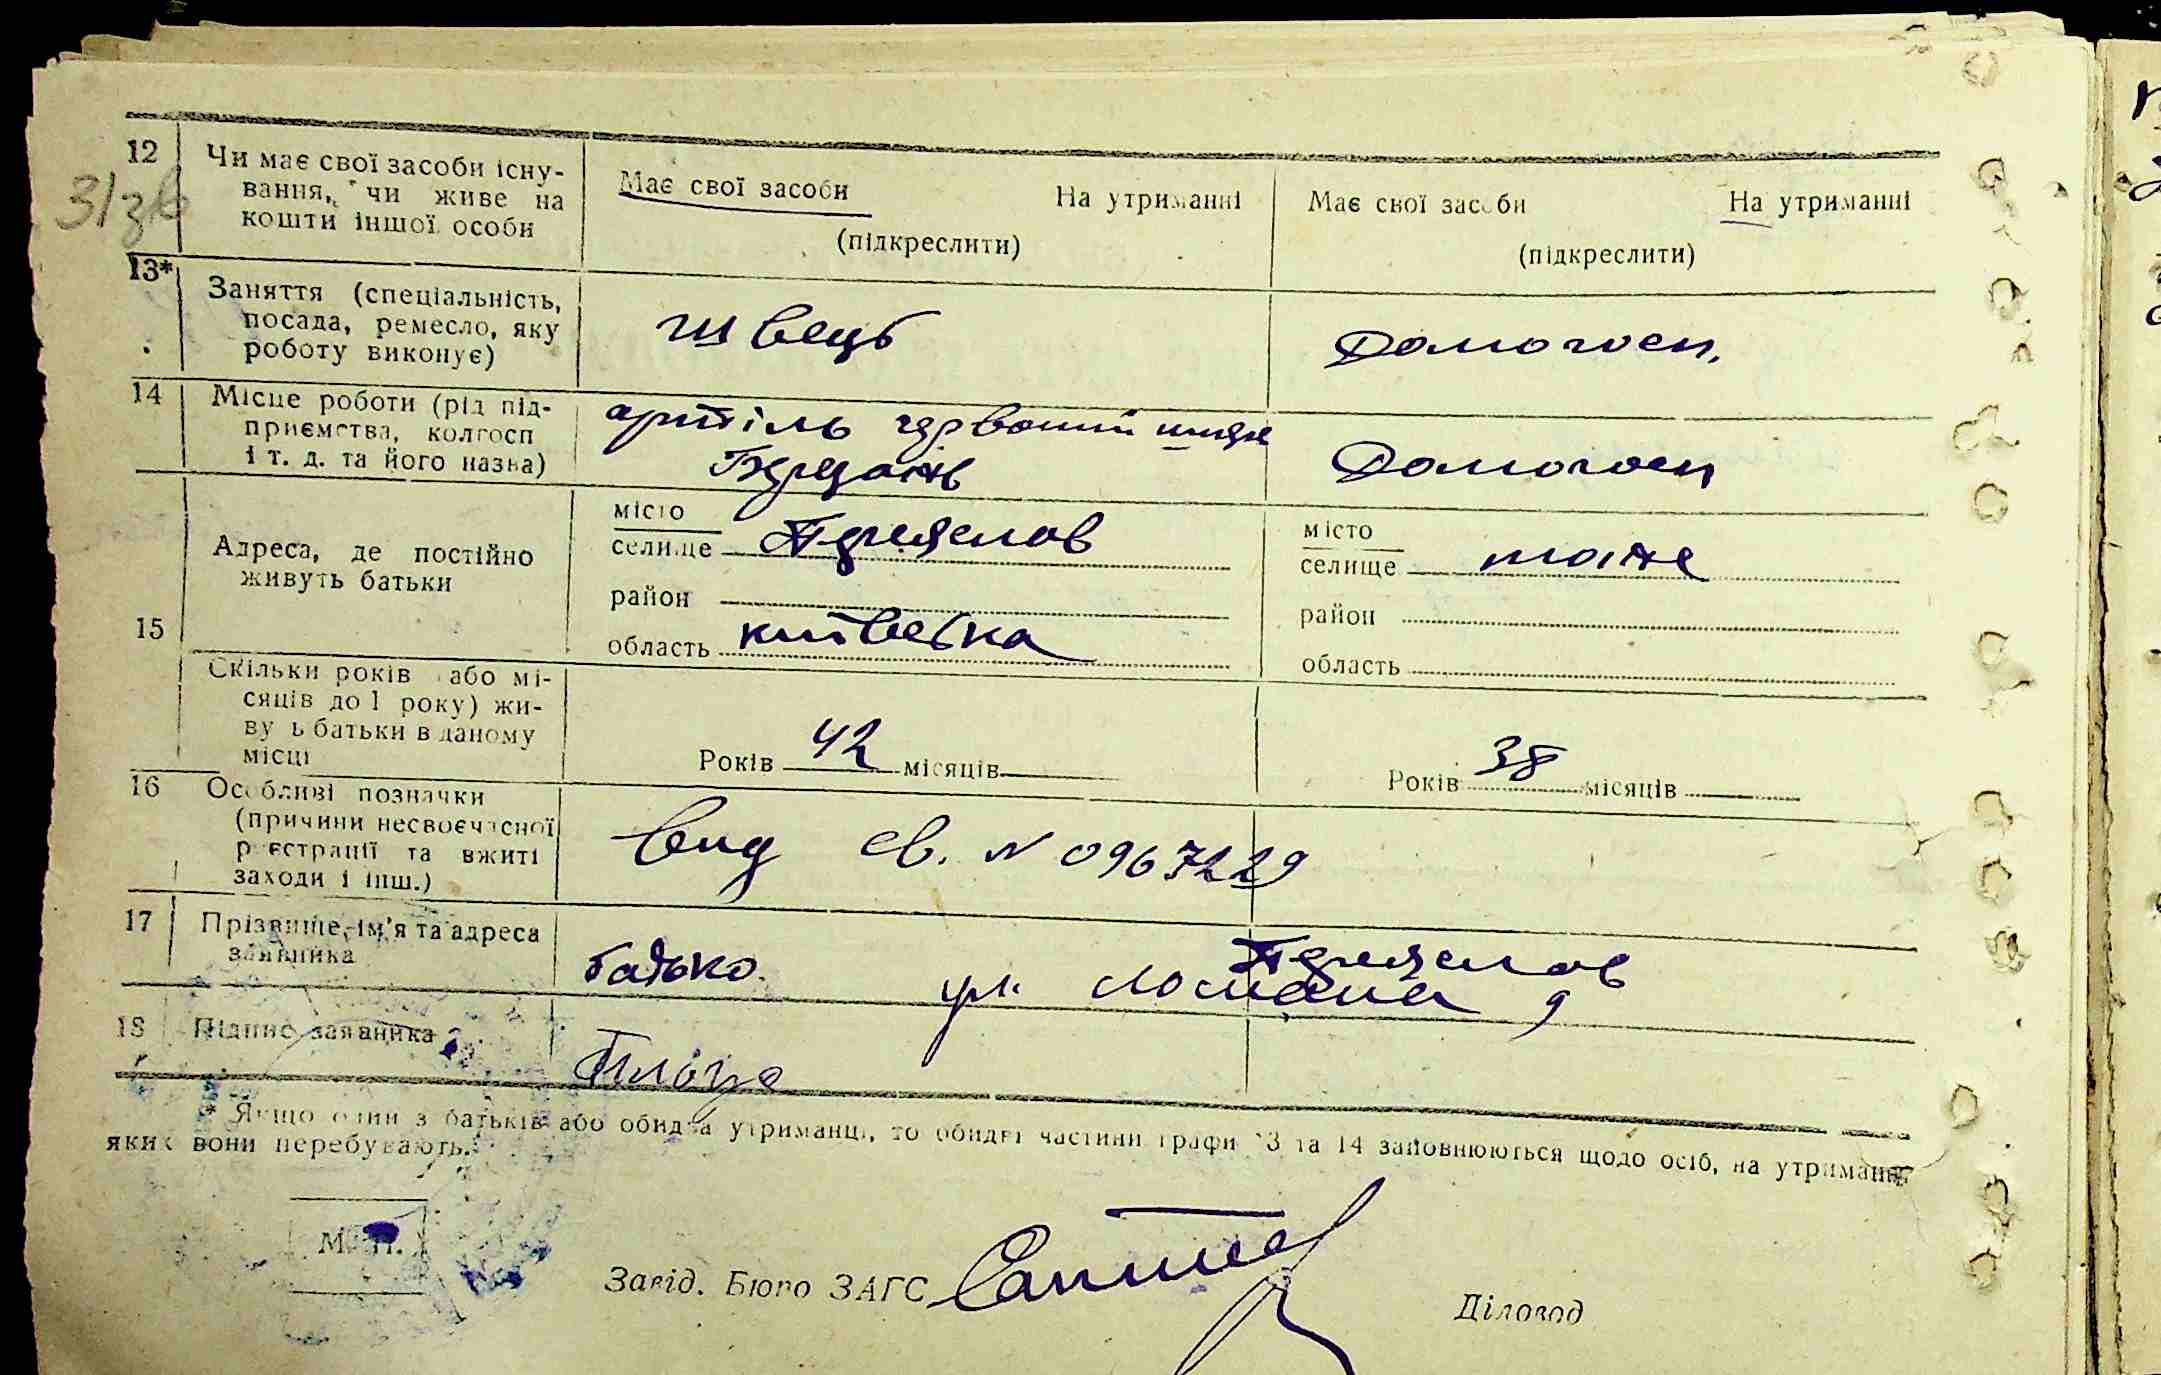 31зв
12 Чи має свої засоби існу-
вання, чи живе на
кошти іншої особи
Має свої засоби На утриманні
(підкреслити)
Має свої засоби На утриманні
(підкреслити)
13* Заняття (спеціальність,
посада, ремесло, яку
роботу виконує)
швець
Домогосп.
14 Місце роботи (рід під-
приємства, колгосп
і т. д. та його назва)
артіль червоний
Домогосп
15 Адреса, де постійно
живуть батьки
місто
селище Переяслов
район
область київська
місто
селище тоже
район
область
Скільки років або мі-
сяців до 1 року) жи-
ву ь батьки в даному
місці
Років 42 місяців
Років 38 місяців
16 Особливі позначки
(причини несвоєчасної
реєстрації та вжиті
заходи і інш.)
Вид св. N 0967229
17 Прізвище, ім'я та адреса
заявника
батько Переяслов
ул. 9
18 Підпис заявника
* Якщо один з батьків або обидва утриманці, то обидві частини графи 13 та 14 заповнюються щодо осіб, на утриманні
яких вони перебувають.
М. П.
Завід. Бюро ЗАГС
Діловод